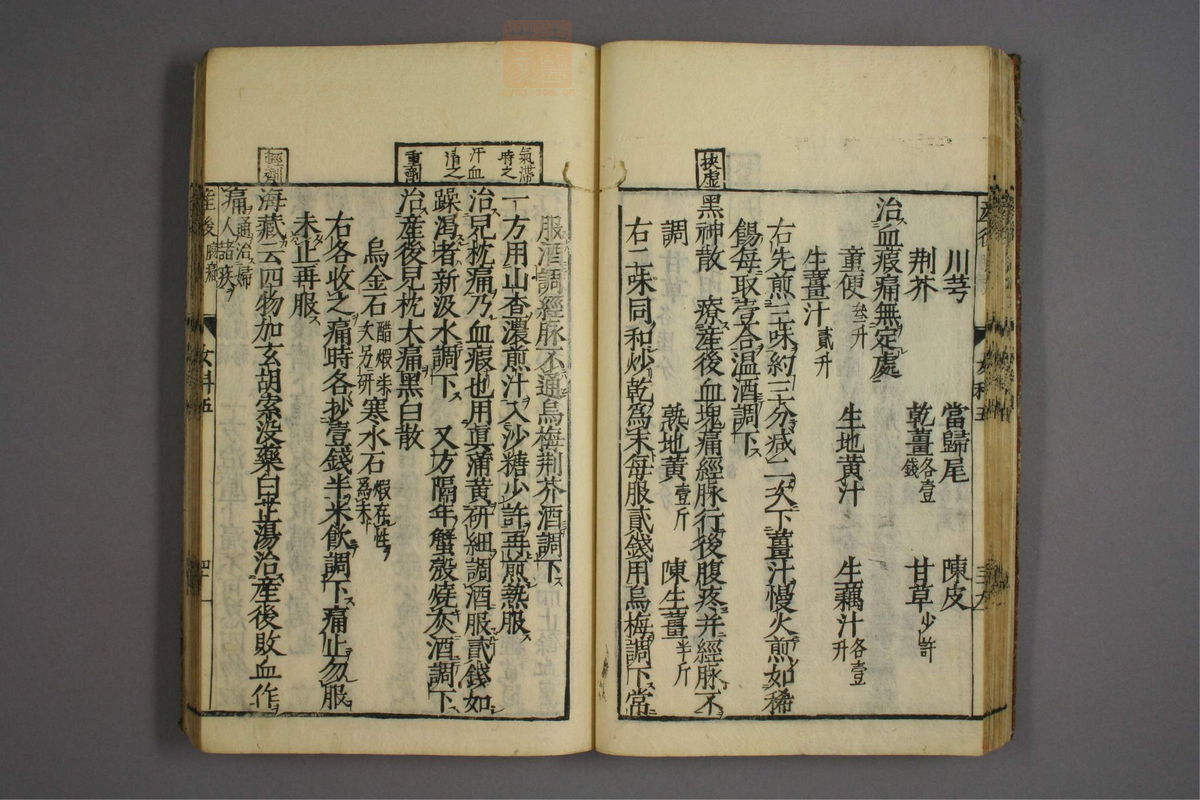 川芎 當歸尾 陳皮
荆芥 乾薑各壹錢 甘草少許
治血瘕痛無定處
童便叁升 生地黄汁 生藕汁各壹升
生薑汁貳升
右先煎三味約三分减二次下薑汁慢火煎如稀
餳每取壹合温酒調下
挾虚
黑神散 療産後血塊痛經脉行後腹疼并經脉不
調 熟地黄壹斤 陳生薑半斤
右二味同和炒乾為末每服貳錢用烏梅調下常
産後 女科五
服酒調經脉不通烏梅荆芥酒調下
氣滯
時之
汗血
滑之
重劑
一方用山查濃煎汁入沙糖少許再煎熱服
治兒枕痛乃血瘕也用真蒲黄研細調酒服貳錢如
躁渴者新汲水調下 又方隔年蟹殻燒灰酒調下
治産後兒枕大痛黑白散
烏金石醋煆朱次另研 寒水石煆在性為末
右各收之痛時各抄壹錢半米飲調下痛止勿服
未止再服
輕劑
海藏云四物加玄胡索没藥白芷湯治産後敗血作
痛通治婦人諸疾
産後 女科五 四十